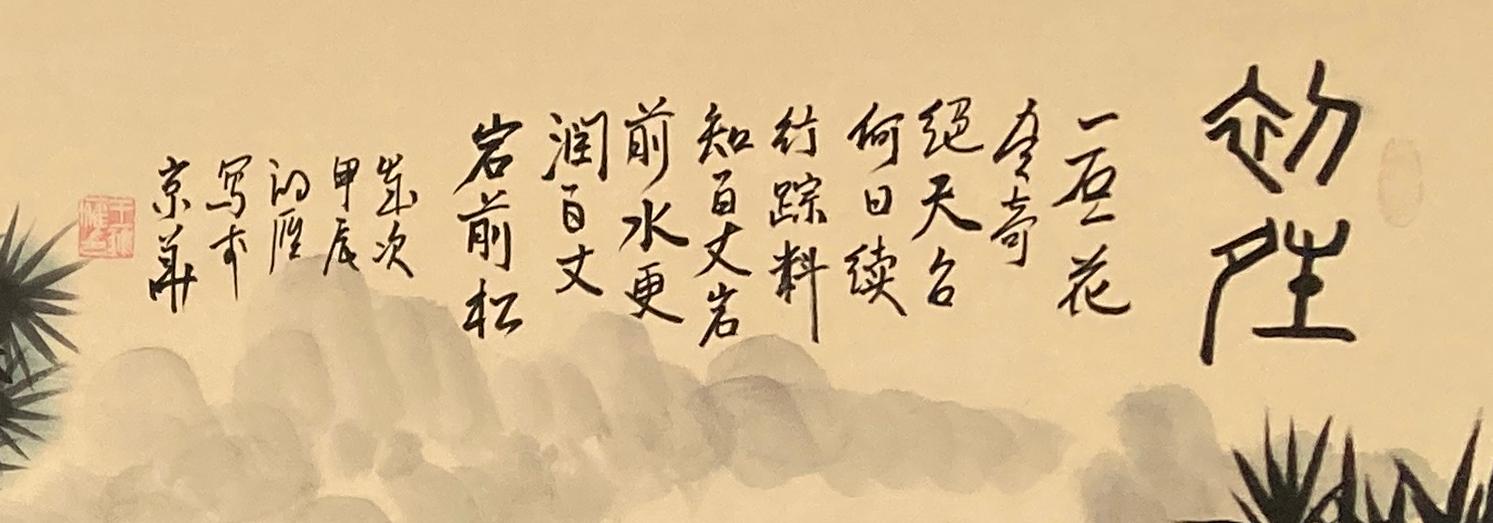 初
一石一花
尽奇
绝天台
何日续
行踪料
知百丈岩
前水更
润百丈
岩前松
岁次
甲辰
写于
京华